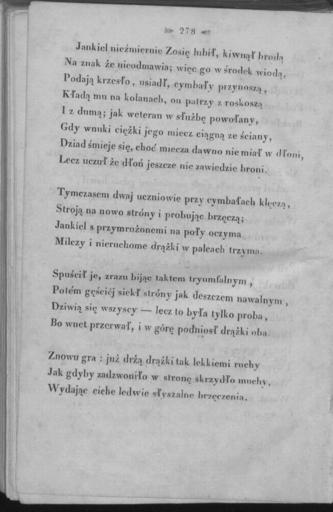 278
Jankiel niezmiernie Zosię lubił, kiwnął brodą
Na znak że nieodmawia; więc go w środek wiodą,
Podają krzesło, usiadł, cymbały przynoszą,
Kładą mu na kolanach, on patrzy z roskoszą
I z dumą; jak weteran w służbę powołany,
Gdy wnuki ciężki jego miecz ciągną ze ściany,
Dziad śmieje się, choć miecza dawno nie miał w dłoni,
Lecz uczuł że dłoń jeszcze nie zawiedzie broni.
Tymczasem dwaj uczniowie przy cymbałach klęczą,
Stroją na nowo stróny i probując brzęczą;
Jankiel s przymrożonemi na poły oczyma
Milczy i nieruchome drążki w palcach trzyma.
Spuścił je, zrazu bijąc taktem tryumfalnym,
Potém gęściéj siekł stróny jak deszczem nawalnym,
Dziwią się wszyscy — lecz to była tylko proba,
Bo wnet przerwał, i w górę podniosł drążki oba.
Znowu gra : już drżą drążki tak lekkiemi ruchy
Jak gdyby zadzwoniło w stronę skrzydło muchy,
Wydając ciche ledwie słyszalne brzęczenia.